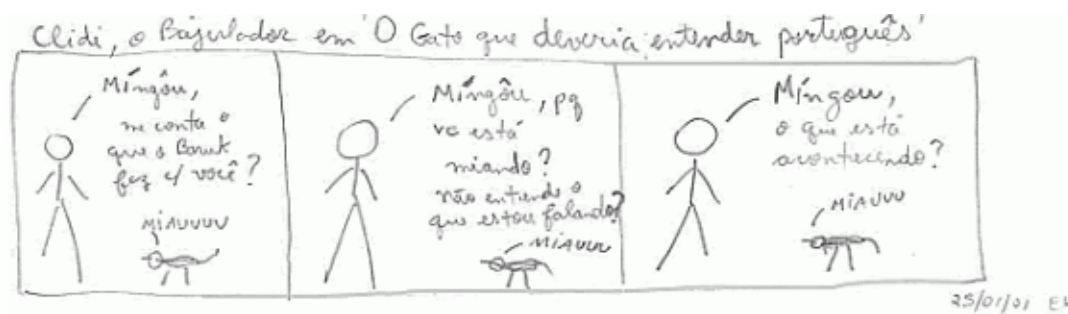 Clidi, o Bajulador em 'O Gato que deveria entender português'
Míngôu,
me conta o
que o Boruk
fez c/ você?
MIAUUUU
Míngôu, pq
vc está
miando?
não entende o
que estou falando?
MIAUUU
Míngou,
o que está
acontecendo?
MIAUUU
25/01/01